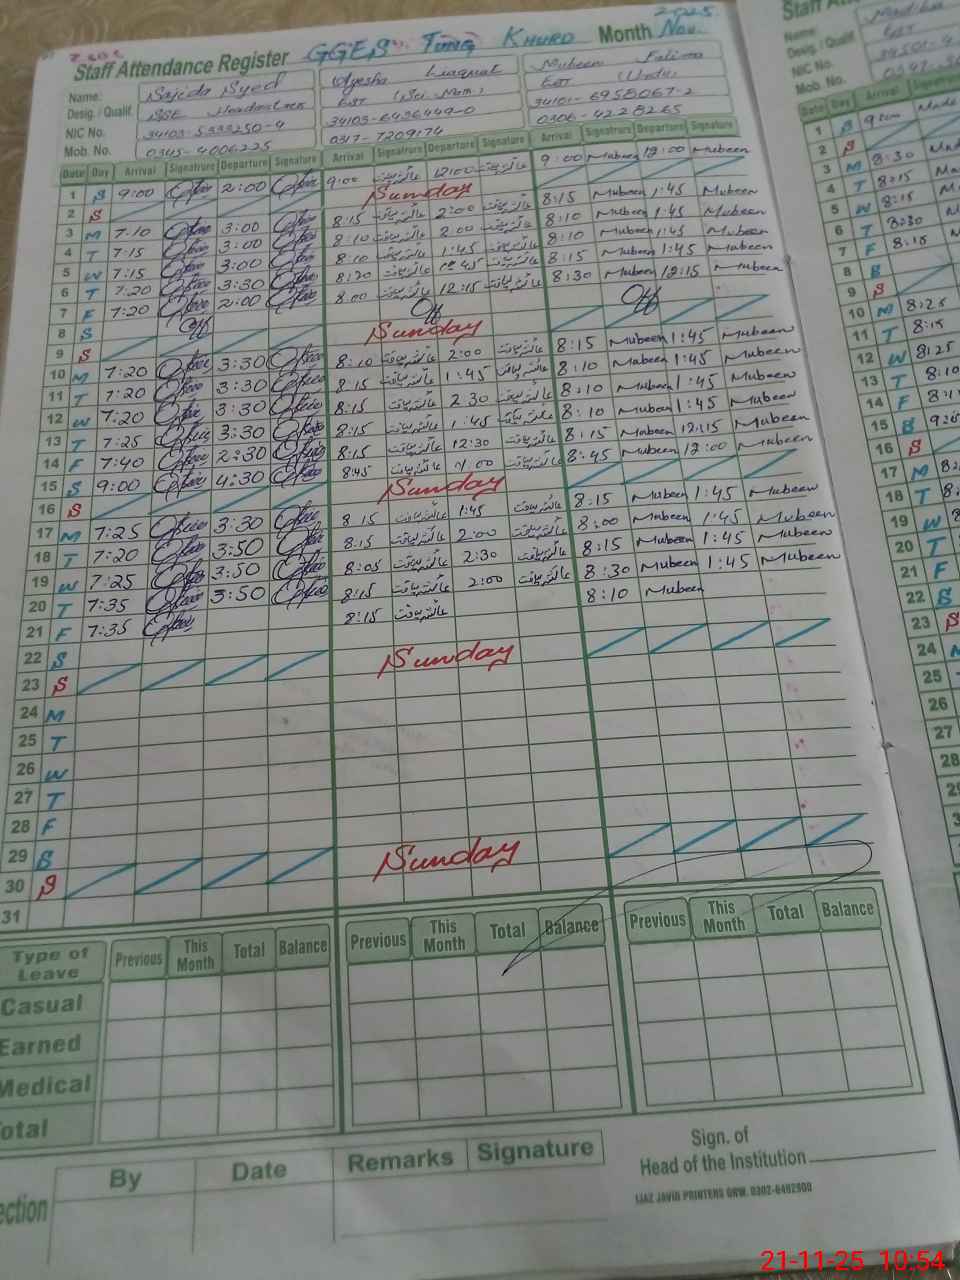 Staff Attendance Register GGES Tong KHURD Month Nov. 2025
Name: Sajida Syed Ayesha Liaquat Mubeen Fatima
Desig. / Qualif. SSE Headmistress EST (Sci. Math) EST (Urdu)
NIC No. 34103-5333250-4 34103-6436449-0 34101-6958067-2
Mob. No. 0345-4006225 0347-7209174 0306-4228265
Date Day Arrival Signatrure Departure Signature Arrival Signatrure Departure Signature Arrival Signatrure Departure Signature
1 S 9:00 2:00 9:00 عائشہ لیاقت 12:00 عائشہ لیاقت 9:00 Mubeen 12:00 Mubeen
2 S Sunday
3 M 7:10 3:00 8:15 عائشہ لیاقت 2:00 عائشہ لیاقت 8:15 Mubeen 1:45 Mubeen
4 T 7:15 3:00 8:10 عائشہ لیاقت 2:00 عائشہ لیاقت 8:10 Mubeen 1:45 Mubeen
5 W 7:15 3:00 8:10 عائشہ لیاقت 1:45 عائشہ لیاقت 8:10 Mubeen 1:45 Mubeen
6 T 7:20 3:30 8:20 عائشہ لیاقت عائشہ لیاقت 8:15 Mubeen 1:45 Mubeen
7 F 7:20 2:00 8:00 عائشہ لیاقت 12:15 عائشہ لیاقت 8:30 Mubeen 12:15 Mubeen
8 S Off Off Off
9 S Sunday
10 M 7:20 3:30 8:10 عائشہ لیاقت 2:00 عائشہ لیاقت 8:15 Mubeen 1:45 Mubeen
11 T 7:20 3:30 8:15 عائشہ لیاقت 1:45 عائشہ لیاقت 8:10 Mubeen 1:45 Mubeen
12 W 7:20 3:30 8:15 عائشہ لیاقت 2:30 عائشہ لیاقت 8:10 Mubeen 1:45 Mubeen
13 T 7:25 3:30 8:15 عائشہ لیاقت 1:45 عائشہ لیاقت 8:10 Mubeen 1:45 Mubeen
14 F 7:40 2:30 8:15 عائشہ لیاقت 12:30 عائشہ لیاقت 8:15 Mubeen 12:15 Mubeen
15 S 9:00 4:30 8:45 عائشہ لیاقت عائشہ لیاقت 8:45 Mubeen 12:00 Mubeen
16 S Sunday
17 M 7:25 3:30 8:15 عائشہ لیاقت 1:45 عائشہ لیاقت 8:15 Mubeen 1:45 Mubeen
18 T 7:20 3:50 8:15 عائشہ لیاقت 2:00 عائشہ لیاقت 8:00 Mubeen 1:45 Mubeen
19 W 7:25 3:50 8:05 عائشہ لیاقت 2:30 عائشہ لیاقت 8:15 Mubeen 1:45 Mubeen
20 T 7:35 3:50 8:15 عائشہ لیاقت 2:00 عائشہ لیاقت 8:30 Mubeen 1:45 Mubeen
21 F 7:35 8:15 عائشہ لیاقت 8:10 Mubeen
22 S
23 S Sunday
24 M
25 T
26 W
27 T
28 F
29 S
30 S Sunday
31
Type of Leave Previous This Month Total Balance Previous This Month Total Balance Previous This Month Total Balance
Casual
Earned
Medical
otal
By Date Remarks Signature
ection
Sign. of
Head of the Institution
IJAZ JAVID PRINTERS GRW. 0302-6492500
Staff
Name:
Desig. / Qualif.
NIC No.
Mob. No.
Date Day Arrival
1 S 9:00
2 S
3 M 8:30
4 T 8:15
5 W 8:15
6 T 8:30
7 F 8:15
8 S
9 S
10 M 8:25
11 T 8:15
12 W 8:25
13 T 8:10
14 F
15 S
16 S
17 M
18 T
19 W
20 T
21 F
22 S
23 S
24
25
26
27
28
21-11-25 10:54